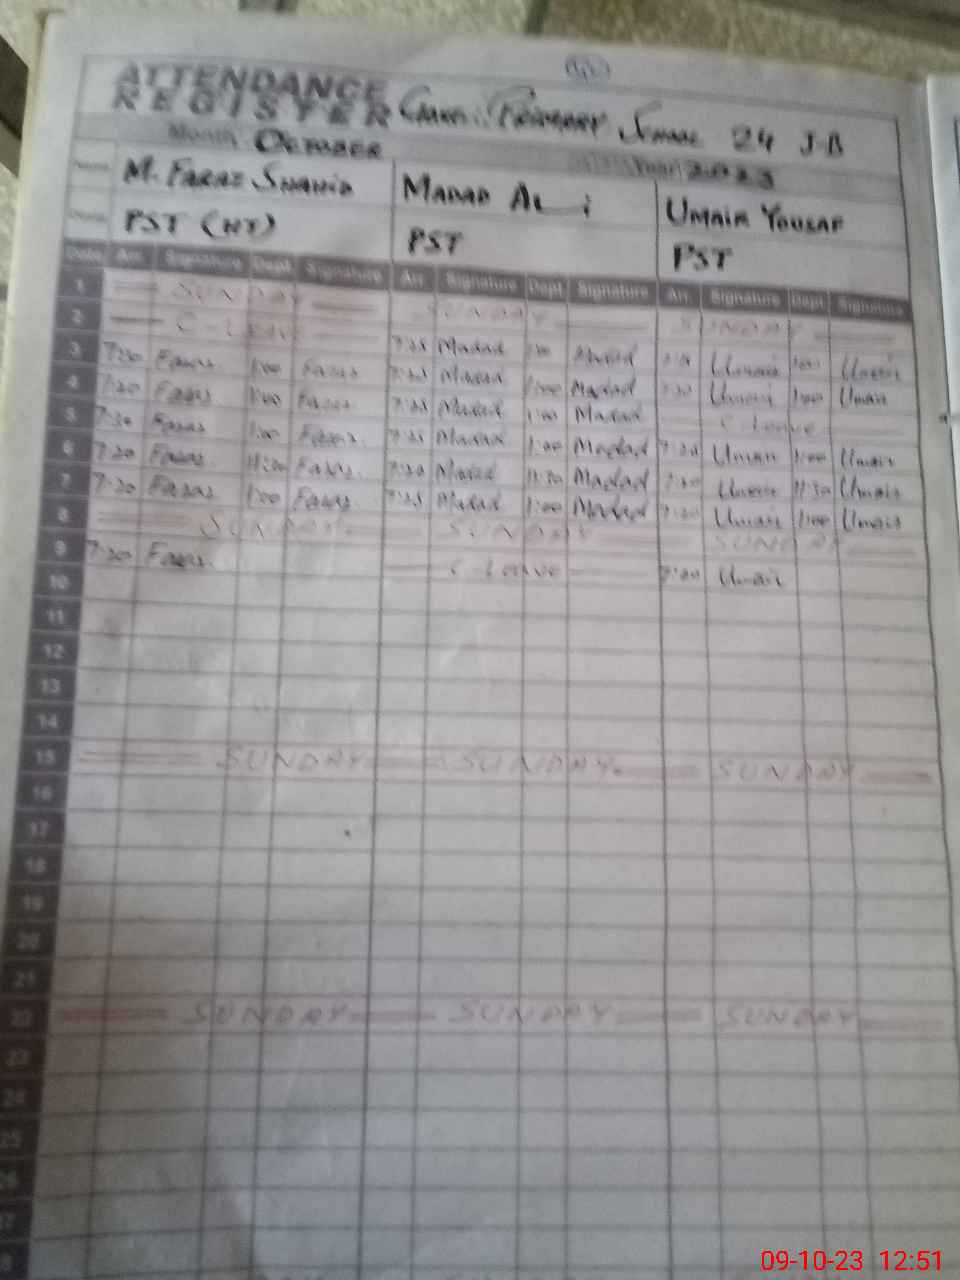 ATTENDANCE
REGISTER Primary School 24 J-B
Month October Year 2023
Name M. Faraz Shahid Madad Ali Umair Yousaf
PST (HT) PST PST
Date Arr. Signature Dept. Signature Arr. Signature Dept. Signature Arr. Signature Dept. Signature
1 SUNDAY SUNDAY SUNDAY
2 C-Leave 7:25 Madad 1:00 Madad Umair Umair
3 7:20 Faraz 1:00 Faraz Madad 1:00 Madad Umair 1:00 Umair
4 7:20 Faraz 1:00 Faraz 7:25 Madad 1:00 Madad C-Leave
5 7:30 Faraz 1:00 Faraz 7:25 Madad 1:00 Madad 7:20 Umair 1:00 Umair
6 7:20 Faraz Faraz 7:20 Madad 11:30 Madad 7:20 Umair 11:30 Umair
7 7:20 Faraz 1:00 Faraz 7:25 Madad 1:00 Madad 7:20 Umair 1:00 Umair
8 SUNDAY SUNDAY SUNDAY
9 7:20 Faraz C-Leave 7:20 Umair
10
11
12
13
14
15 SUNDAY SUNDAY SUNDAY
16
17
18
19
20
21
22 SUNDAY SUNDAY SUNDAY
23
24
25
26
27
09-10-23 12:51